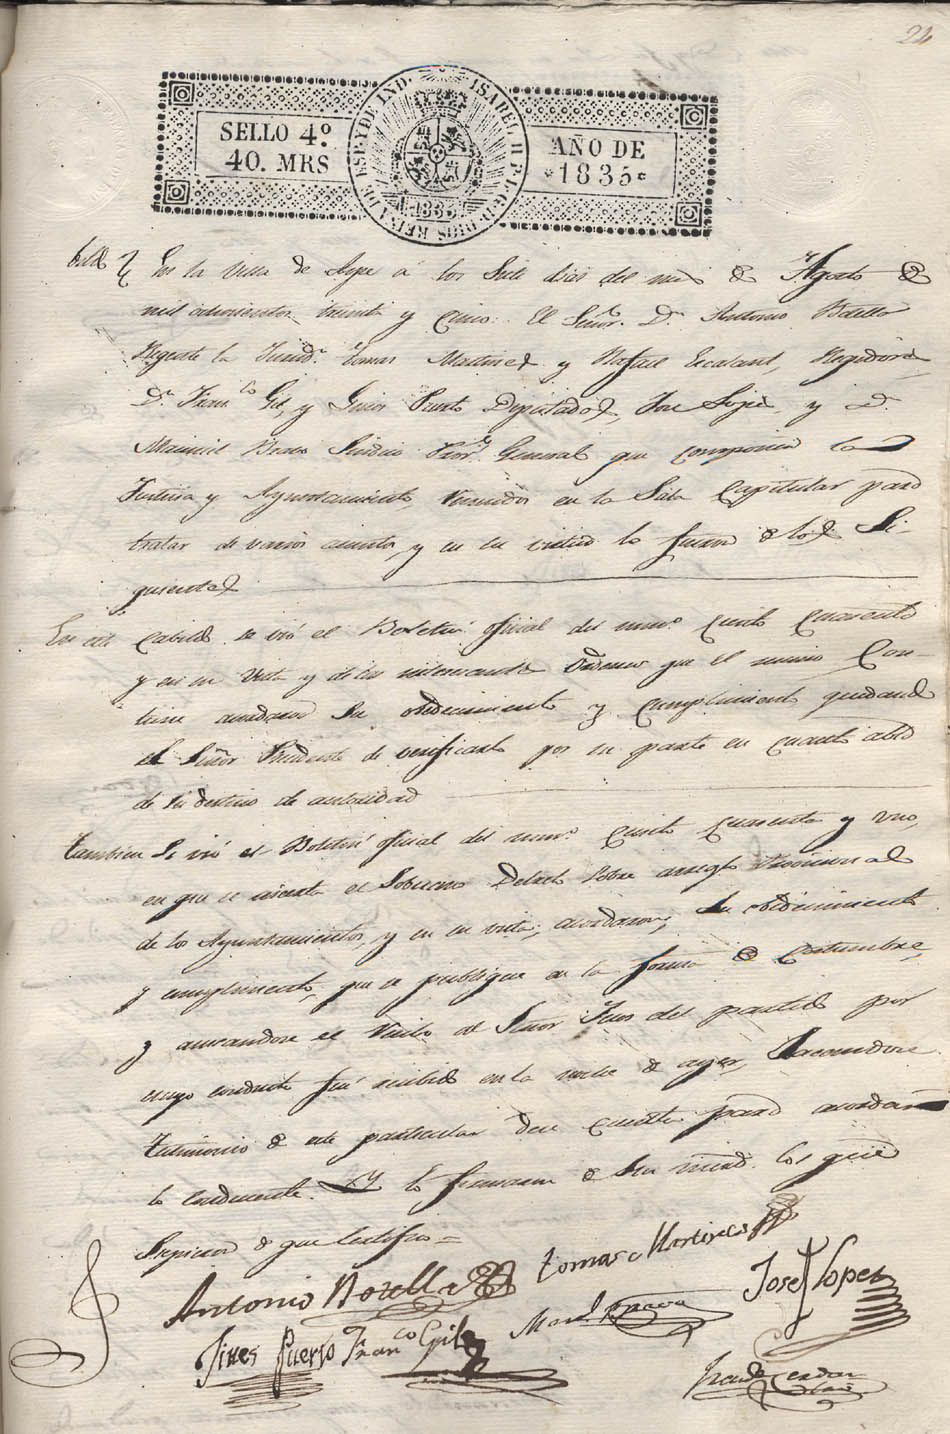 24
SELLO 4º
40. MRS
ISABEL II P. L. G. D. DIOS REINA DE ESP. Y DE IND.
1835
AÑO DE
1835
Cabildo En la Villa de Aspe á los Siete dias del mes de Agosto de
mil ochocientos treinta y Cinco: El Señor Dn. Antonio Botella
Regente la Jurisdn. Tomas Martinez y Rafael Escalant, Regidores
Dn. Franco. Gil, y Gines Puerto Diputados, Jose Lopez, y Dn.
Manuel Bravo Sindico Pror. General que componen la
Justicia y Ayuntamiento, reunidos en la Sala Capitular para
tratar de varios asuntos, y en su virtud lo fueron de los Si-
guientes
En este Cabildo se vió el Boletin oficial del numo. Ciento Cuarenta
y en su Vista y de las interesantes Ordenes que el mismo Con-
tiene acordaron Su obedecimiento y Cumplimiento quedando
el Señor Presidente de verificarlo por su parte en cuanto
de su destino de autoridad
Tambien Se vió el Boletin oficial del numo. Ciento Cuarenta y uno,
en que se inserta el Soberano Decreto Sobre arreglo Provisional
de los Ayuntamientos, y en su vista, acordaron, Su obedecimiento
y cumplimiento, que se publique en la forma de Costumbre,
y avisandose el recibo al Señor Juez del partido por
cuyo conducto fué recibido en la noche de ayer, Sacandose
testimonio de este particular dese cuenta para acordar
lo conducente. Y lo firmaron de Sus mercedes los que
Supieron de que Certifico =
Antonio Botella
Tomas Martinez
Jose Lopez
Gines Puerto
Franco. Gil
Manl. Bravo